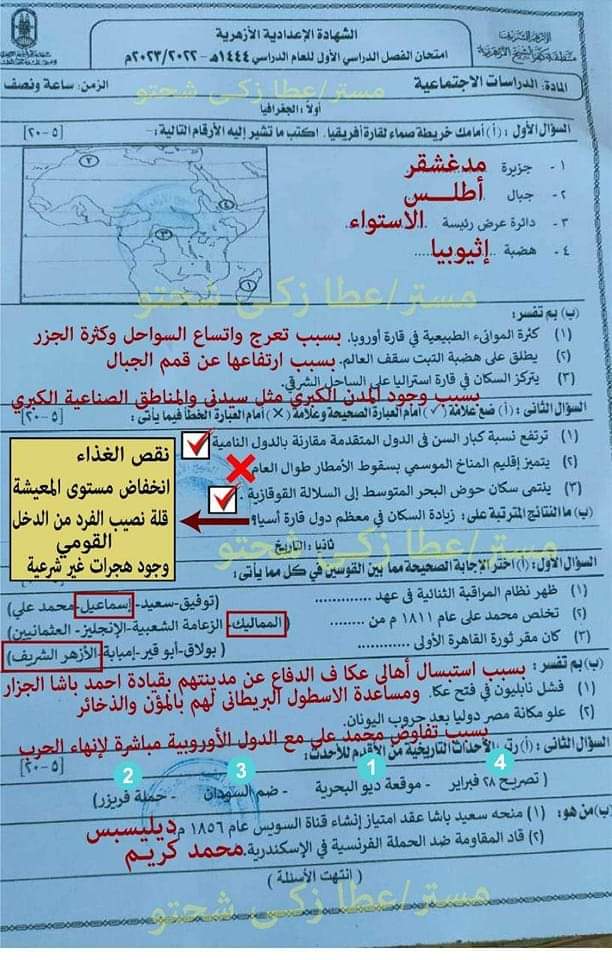 الأزهر الشريف
الشهادة الإعدادية الأزهرية
امتحان الفصل الدراسي الأول للعام الدراسي ١٤٤٤هـ - ٢٠٢٢/٢٠٢٣م
المادة: الدراسات الاجتماعية
الزمن: ساعة ونصف
مستر/عطا زكى شحتو
أولاً: الجغرافيا
السؤال الأول: (أ) أمامك خريطة صماء لقارة أفريقيا. اكتب ما تشير إليه الأرقام التالية:-
[٥-٢٠]
١- جزيرة مدغشقر
٢- جبال أطلس
٣- دائرة عرض رئيسة الاستواء
٤- هضبة إثيوبيا
مستر/عطا زكى شحتو
(ب) بم تفسر:
(١) كثرة الموانىء الطبيعية في قارة أوروبا. بسبب تعرج واتساع السواحل وكثرة الجزر
(٢) يطلق على هضبة التبت سقف العالم. بسبب ارتفاعها عن قمم الجبال
(٣) يتركز السكان في قارة استراليا على الساحل الشرقي.
بسبب وجود المدن الكبري مثل سيدني والمناطق الصناعية الكبري
السؤال الثاني: (أ) ضع علامة (✓) أمام العبارة الصحيحة وعلامة (×) أمام العبارة الخطأ فيما يأتى:
[٥-٢٠]
(١) ترتفع نسبة كبار السن في الدول المتقدمة مقارنة بالدول النامية
(٢) يتميز إقليم المناخ الموسمي بسقوط الأمطار طوال العام
(٣) ينتمى سكان حوض البحر المتوسط إلى السلالة القوقازية.
(ب) ما النتائج المترتبة على: زيادة السكان في معظم دول قارة أسيا؟
نقص الغذاء
انخفاض مستوى المعيشة
قلة نصيب الفرد من الدخل
القومي
وجود هجرات غير شرعية
مستر/عطا زكى شحتو
ثانيا: التاريخ
السؤال الأول: (أ) اختر الإجابة الصحيحة مما بين القوسين في كل مما يأتى:
(١) ظهر نظام المراقبة الثنائية في عهد ............ (توفيق-سعيد-إسماعيل-محمد علي)
(٢) تخلص محمد على عام ١٨١١ م من ......... (المماليك- الزعامة الشعبية-الإنجليز- العثمانيين)
(٣) كان مقر ثورة القاهرة الأولى ........... (بولاق-أبو قير-إمبابة-الأزهر الشريف)
(ب) بم تفسر:
بسبب استبسال أهالى عكا ف الدفاع عن مدينتهم بقيادة احمد باشا الجزار
(١) فشل نابليون في فتح عكا. ومساعدة الاسطول البريطانى لهم بالمؤن والذخائر
(٢) علو مكانة مصر دوليا بعد حروب اليونان.
بسبب تفاوض محمد على مع الدول الأوروبية مباشرة لإنهاء الحرب
السؤال الثاني: (أ) رتب الأحداث التاريخية من الأقدم للأحدث:
[٥-٢٠]
4 1 3 2
(تصريح ٢٨ فبراير - موقعة ديو البحرية - ضم السودان - حملة فريزر)
(ب) من هو: (١) منحه سعيد باشا عقد امتياز إنشاء قناة السويس عام ١٨٥٦ م ديليسبس
(٢) قاد المقاومة ضد الحملة الفرنسية في الإسكندرية. محمد كريم
(انتهت الأسئلة)
مستر/عطا زكى شحتو